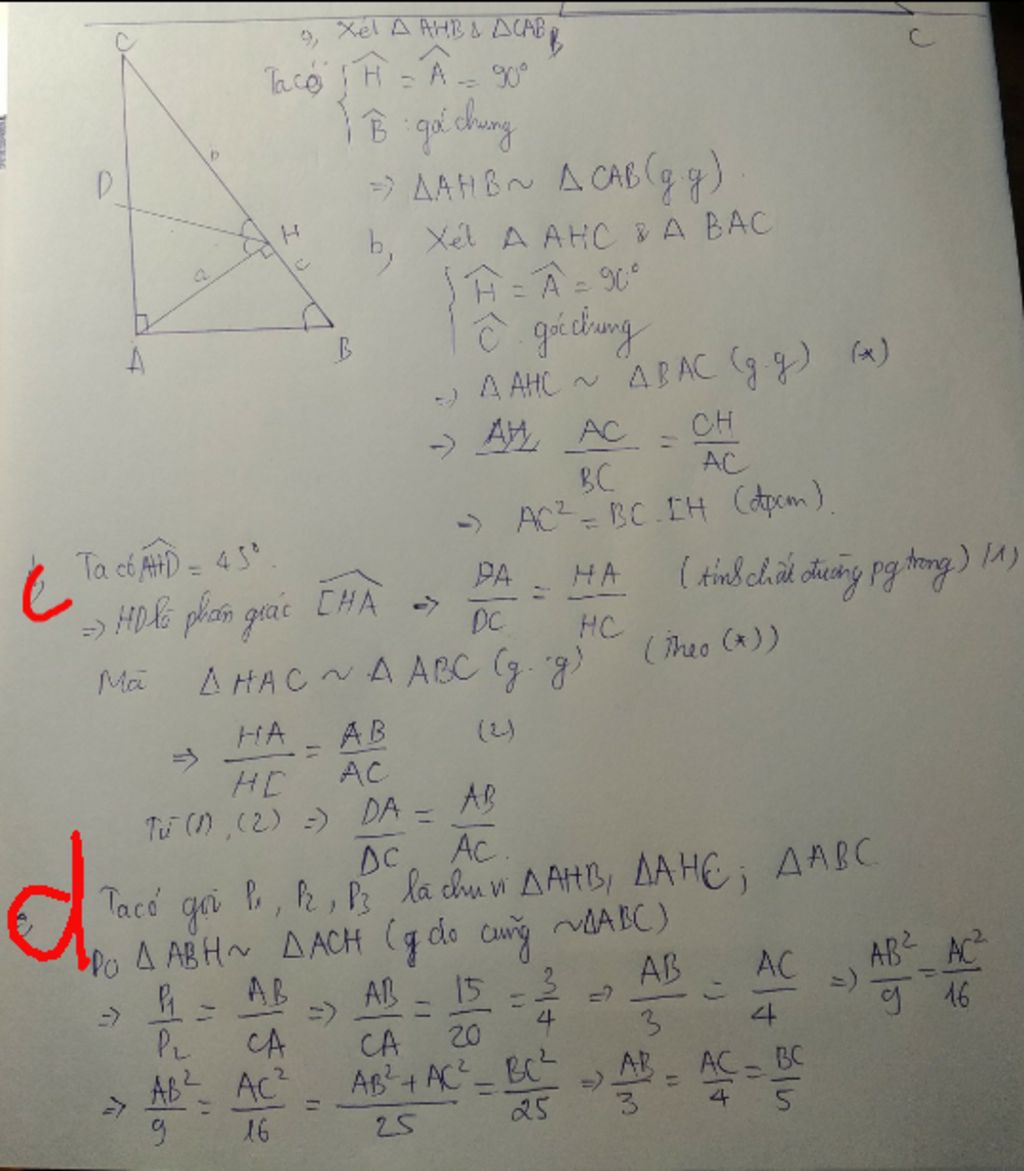 a, Xét Δ AHB & Δ CAB
B C
C
Ta có { Ĥ = Â = 90°
B̂ : góc chung
b
=> ΔAHB ~ ΔCAB (g.g).
D
H
b, Xét Δ AHC & Δ BAC
c
a
{ Ĥ = Â = 90°
Ĉ góc chung
A B
=> ΔAHC ~ ΔBAC (g.g) (*)
=> AC/BC = CH/AC
=> AC² = BC.CH (đpcm).
c Ta có AHD = 45°.
=> HD là phân giác CHA => DA/DC = HA/HC (tính chất đường pg trong) (1)
Mà ΔHAC ~ ΔABC (g.g) (theo (*))
=> HA/HC = AB/AC (2)
Từ (1), (2) => DA/DC = AB/AC.
d Ta có gọi P₁, P₂, P₃ là chu vi ΔAHB, ΔAHC; ΔABC
Do ΔABH ~ ΔACH (do cùng ~ΔABC)
=> P₁/P₂ = AB/CA => AB/CA = 15/20 = 3/4 => AB/3 = AC/4 => AB²/9 = AC²/16
=> AB²/9 = AC²/16 = AB²+AC²/25 = BC²/25 => AB/3 = AC/4 = BC/5